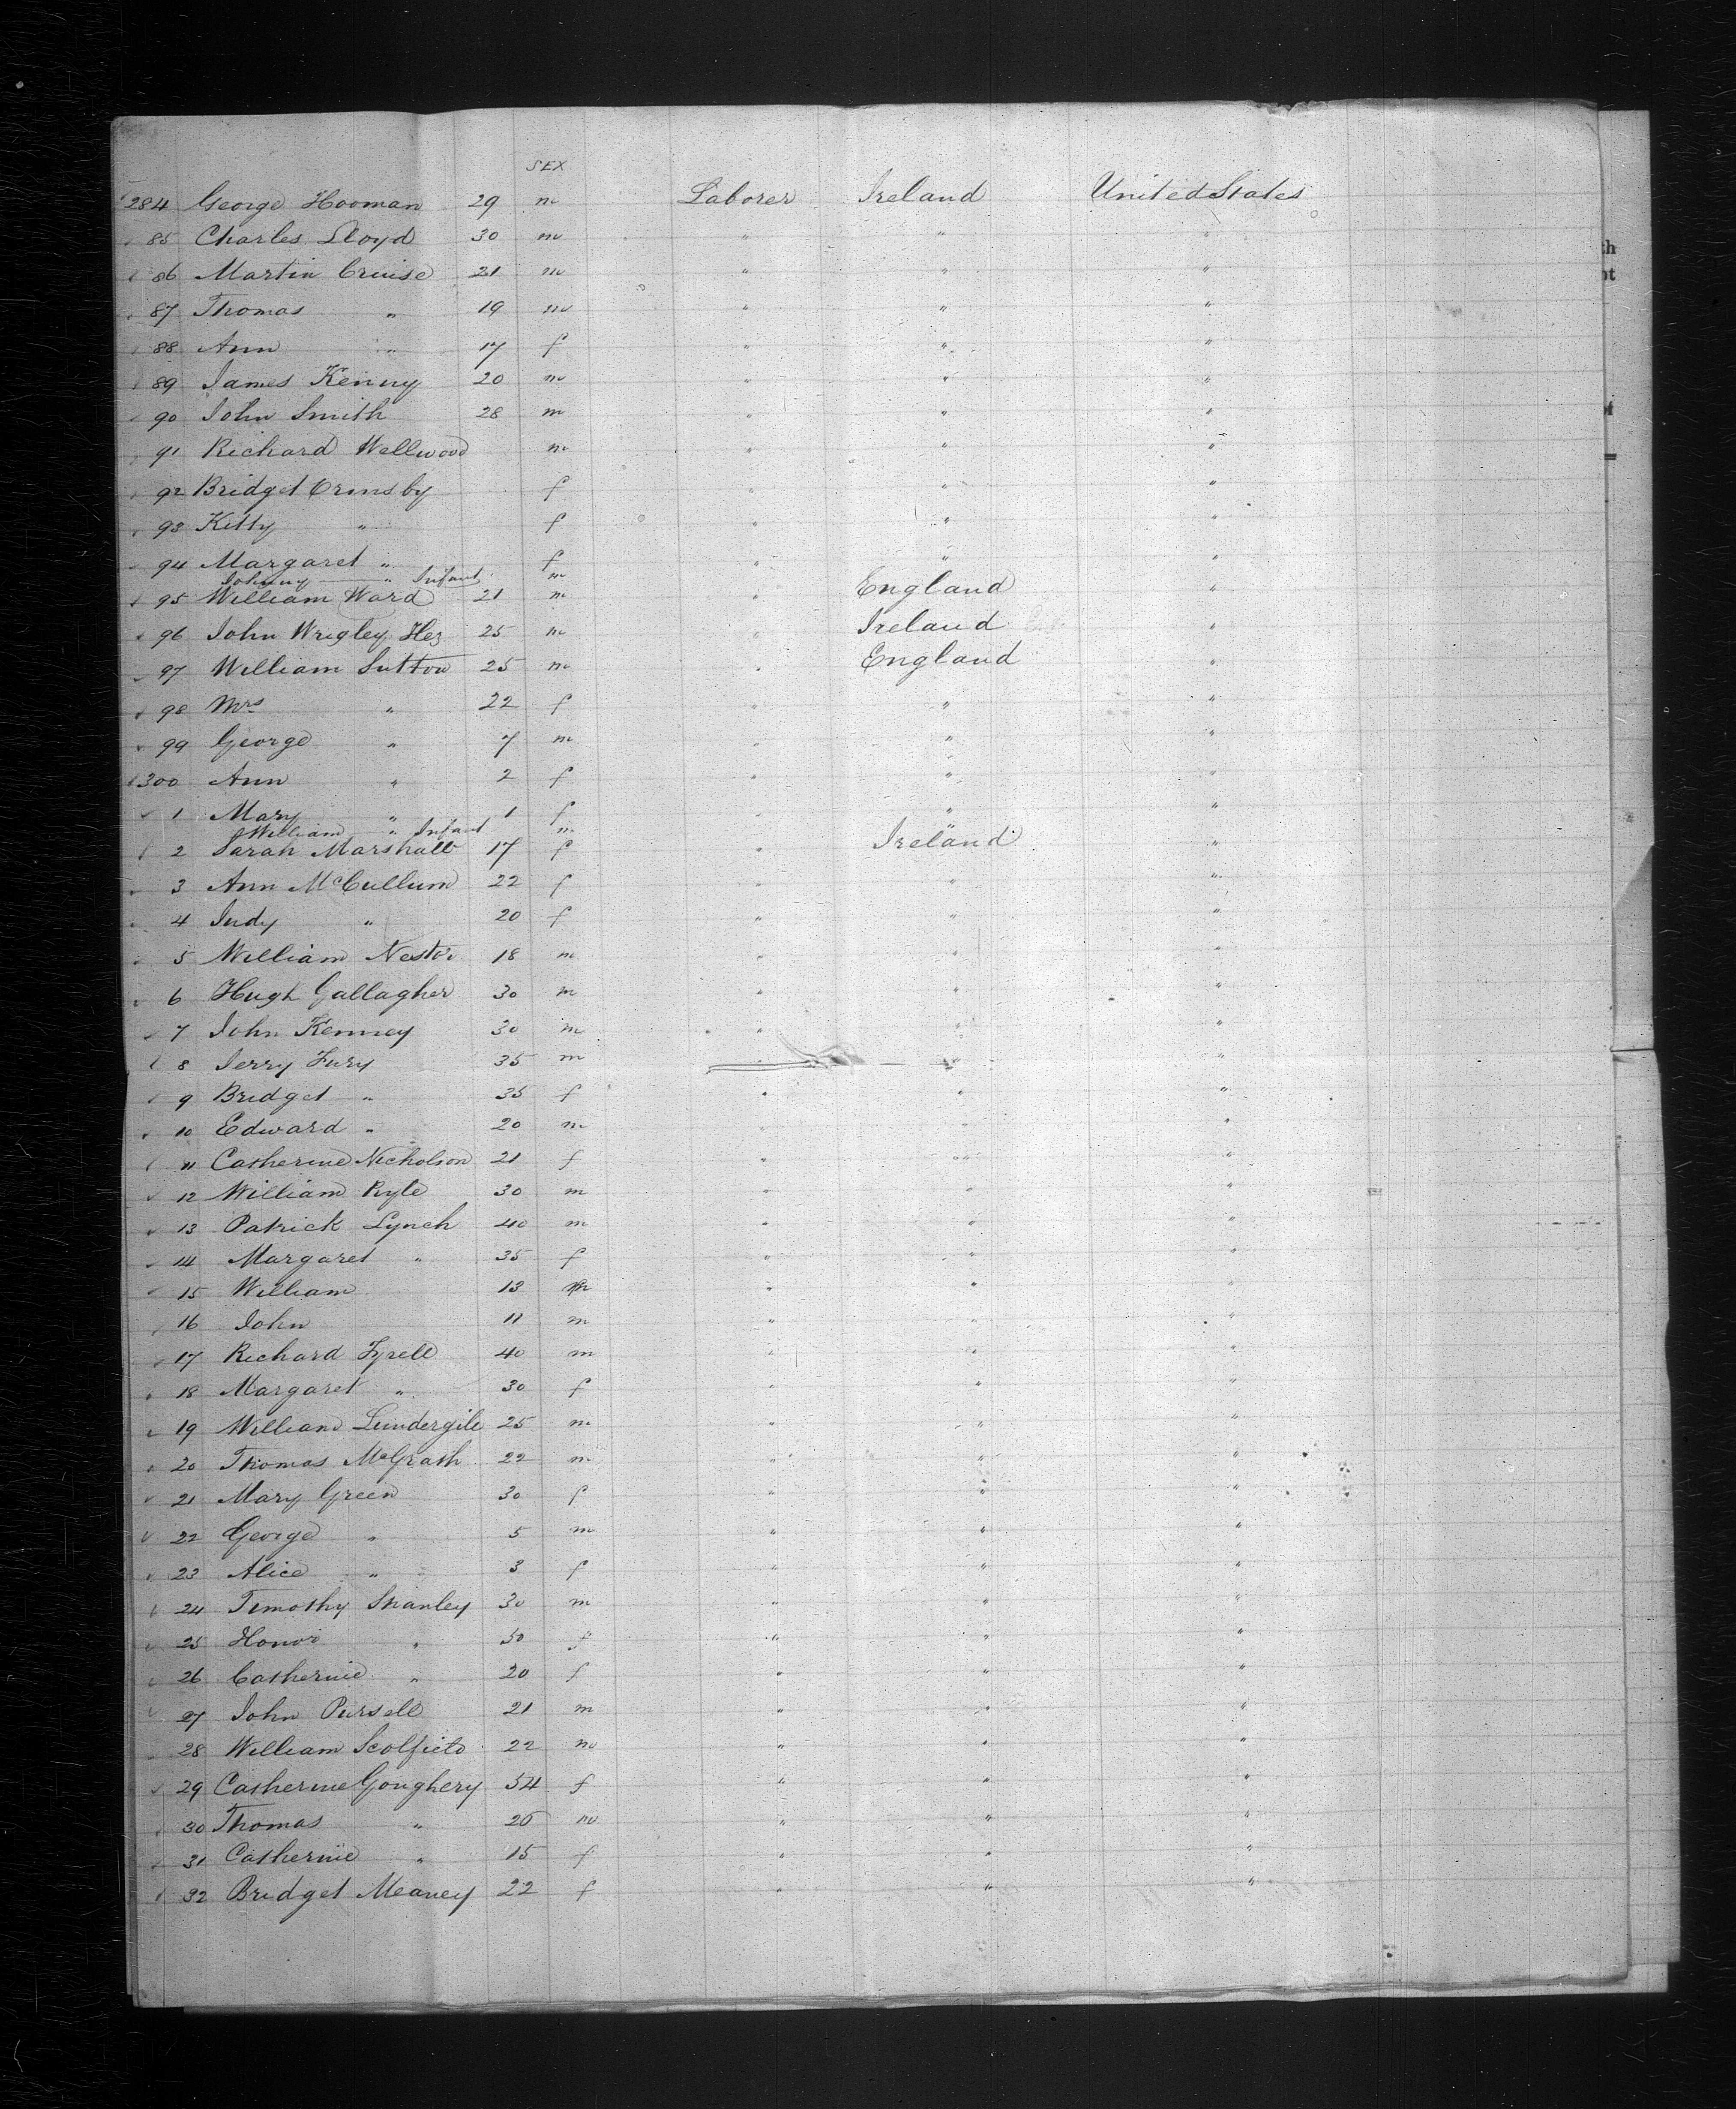 SEX
284 George Hooman 29 m Laborer Ireland United States
85 Charles Lloyd 30 m " " "
86 Martin Cruise 21 m " " "
87 Thomas " 19 m " " "
88 Ann " 17 f " " "
89 James Kenny 20 m " " "
90 John Smith 28 m " " "
91 Richard Wellwood m " " "
92 Bridget Ormsby f " " "
93 Kitty " f " " "
94 Margaret " f " " "
Johnny " Infant m
95 William Ward 21 m " England "
96 John Wrigley 25 m " Ireland "
97 William Sutton 25 m " England "
98 Mrs " 22 f " " "
99 George " 7 m " " "
300 Ann " 2 f " " "
1 Mary " 1 f " " "
William " Infant m "
2 Sarah Marshall 17 f " Ireland "
3 Ann McCullum 22 f " " "
4 Judy " 20 f " " "
5 William Nestor 18 m " " "
6 Hugh Gallagher 30 m " " "
7 John Kenney 30 m " " "
8 Jerry Fury 35 m " " "
9 Bridget " 35 f " " "
10 Edward " 20 m " " "
11 Catherine Nicholson 21 f " " "
12 William Ryle 30 m " " "
13 Patrick Lynch 40 m " " "
14 Margaret " 35 f " " "
15 William 13 m " " "
16 John 11 m " " "
17 Richard Tyrell 40 m " " "
18 Margaret " 30 f " " "
19 William Lundergile 25 m " " "
20 Thomas McGrath 22 m " " "
21 Mary Green 30 f " " "
22 George " 5 m " " "
23 Alice " 3 f " " "
24 Timothy Shanley 30 m " " "
25 Honor " 50 f " " "
26 Catherine " 20 f " " "
27 John Pursell 21 m " " "
28 William Scolfield 22 m " " "
29 Catherine Goughery 54 f " " "
30 Thomas " 26 m " " "
31 Catherine " 15 f " " "
32 Bridget Meaney 22 f " " "